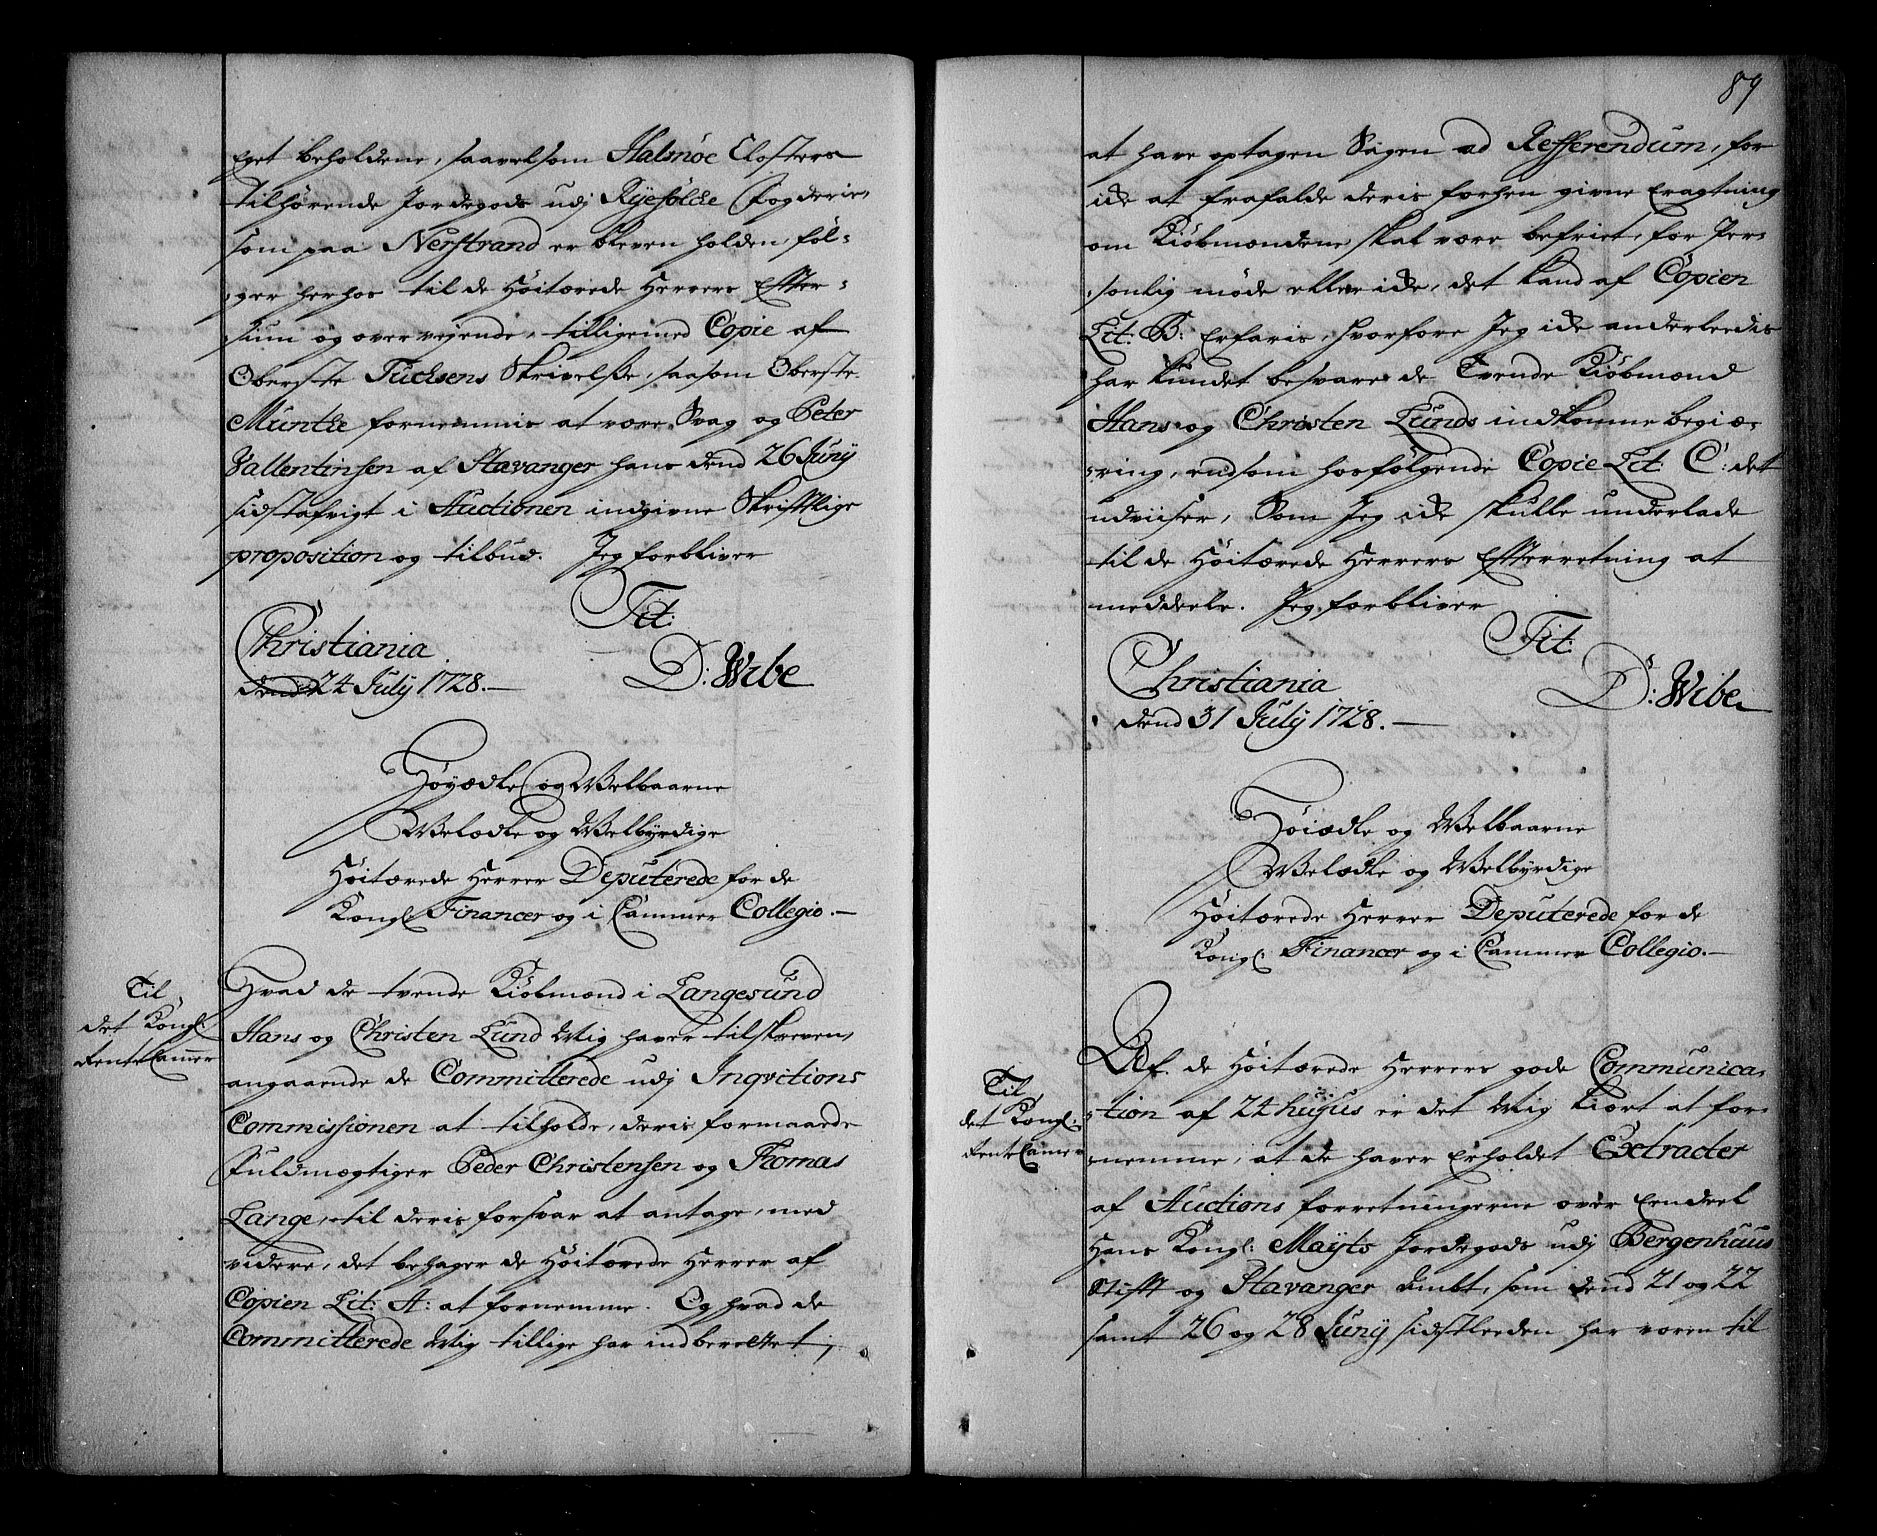 Eget beholdene, saavelsom Halsnöe Closters
tilhörende Jordegods udj Ryefölcke Fogderie,
som paa Nerstrand er bleven holden, föl-
ger herhos til de Höitærede Herrers Effter-
siun og overvejende, tilligemed Copie af
Oberste Tuchsens Skrivelsse, saasom Oberste
Müntke fornemmis at være Svag og Peter
Vallentinsen af Stavanger hans dend 26 Juny
sidstafvigt i Auctionen indgivne Skrifftlige
proposition og tilbud. Jeg forbliver
Tit:
Christiania
dend 24 July 1728.
D: Wibe
Höyædle og Welbaarne
Welædle og Welbyrdige
Höitærede Herrer Deputerede for de
Kongl: Financer og i Cammer Collegio.
Til
det Kongl:
RenteCamer
Hvad de tvende Kiöbmænd i Langesund
Hans og Christen Lund Mig haver tilskreven,
angaaende de Committerede udj Inqvitions
Commissionen at tilholde, deris formaaede
Fuldmægtiger Peder Christensen og Thomas
Lange, til deris forsvar at antage, med
videre, det behager de Höitærede Herrer af
Copien Lit: A: at fornemme. Og hvad de
Committerede Mig tillige har indberettet,
89
at have optagen Sagen ad Refferendum, for
ide at frafalde deris forhen givne Eragtning
om Kiöbmændene skal være befriet, for Per-
sonlig möde eller ide, det kand af Copien
Lit: B: Erfaris, hvorfore Jeg ide anderleedis
har kundet besvare de Tvende Kiöbmænd
Hans og Christen Lunds indkomne begiæ-
ring, end som hosfölgende Copie Lit: C: det
udviiser, Som Jeg ide skulle underlade
til de Höitærede Herrers Effterretning at
meddeele. Jeg forbliver
Tit:
Christiania
dend 31 July 1728.
D: Wibe
Höiædle og Welbaarne
Welædle og Welbyrdige
Höitærede Herrer Deputerede for de
Kongl: Financer og i Cammer Collegio.
Til
det Kongl:
RenteCamer
Af de Höitærede Herrers gode Communica-
tion af 24 hujus er det Mig kiært at for-
nemme, at de haver Erholdet Extracter
af Auctions forretningerne over Eendeel
Hans Kongl: Mayts Jordegods udj Bergenhuus
Stifft og Stavanger Ambt, som dend 21 og 22
samt 26 og 28 Juny sidstleeden har været til